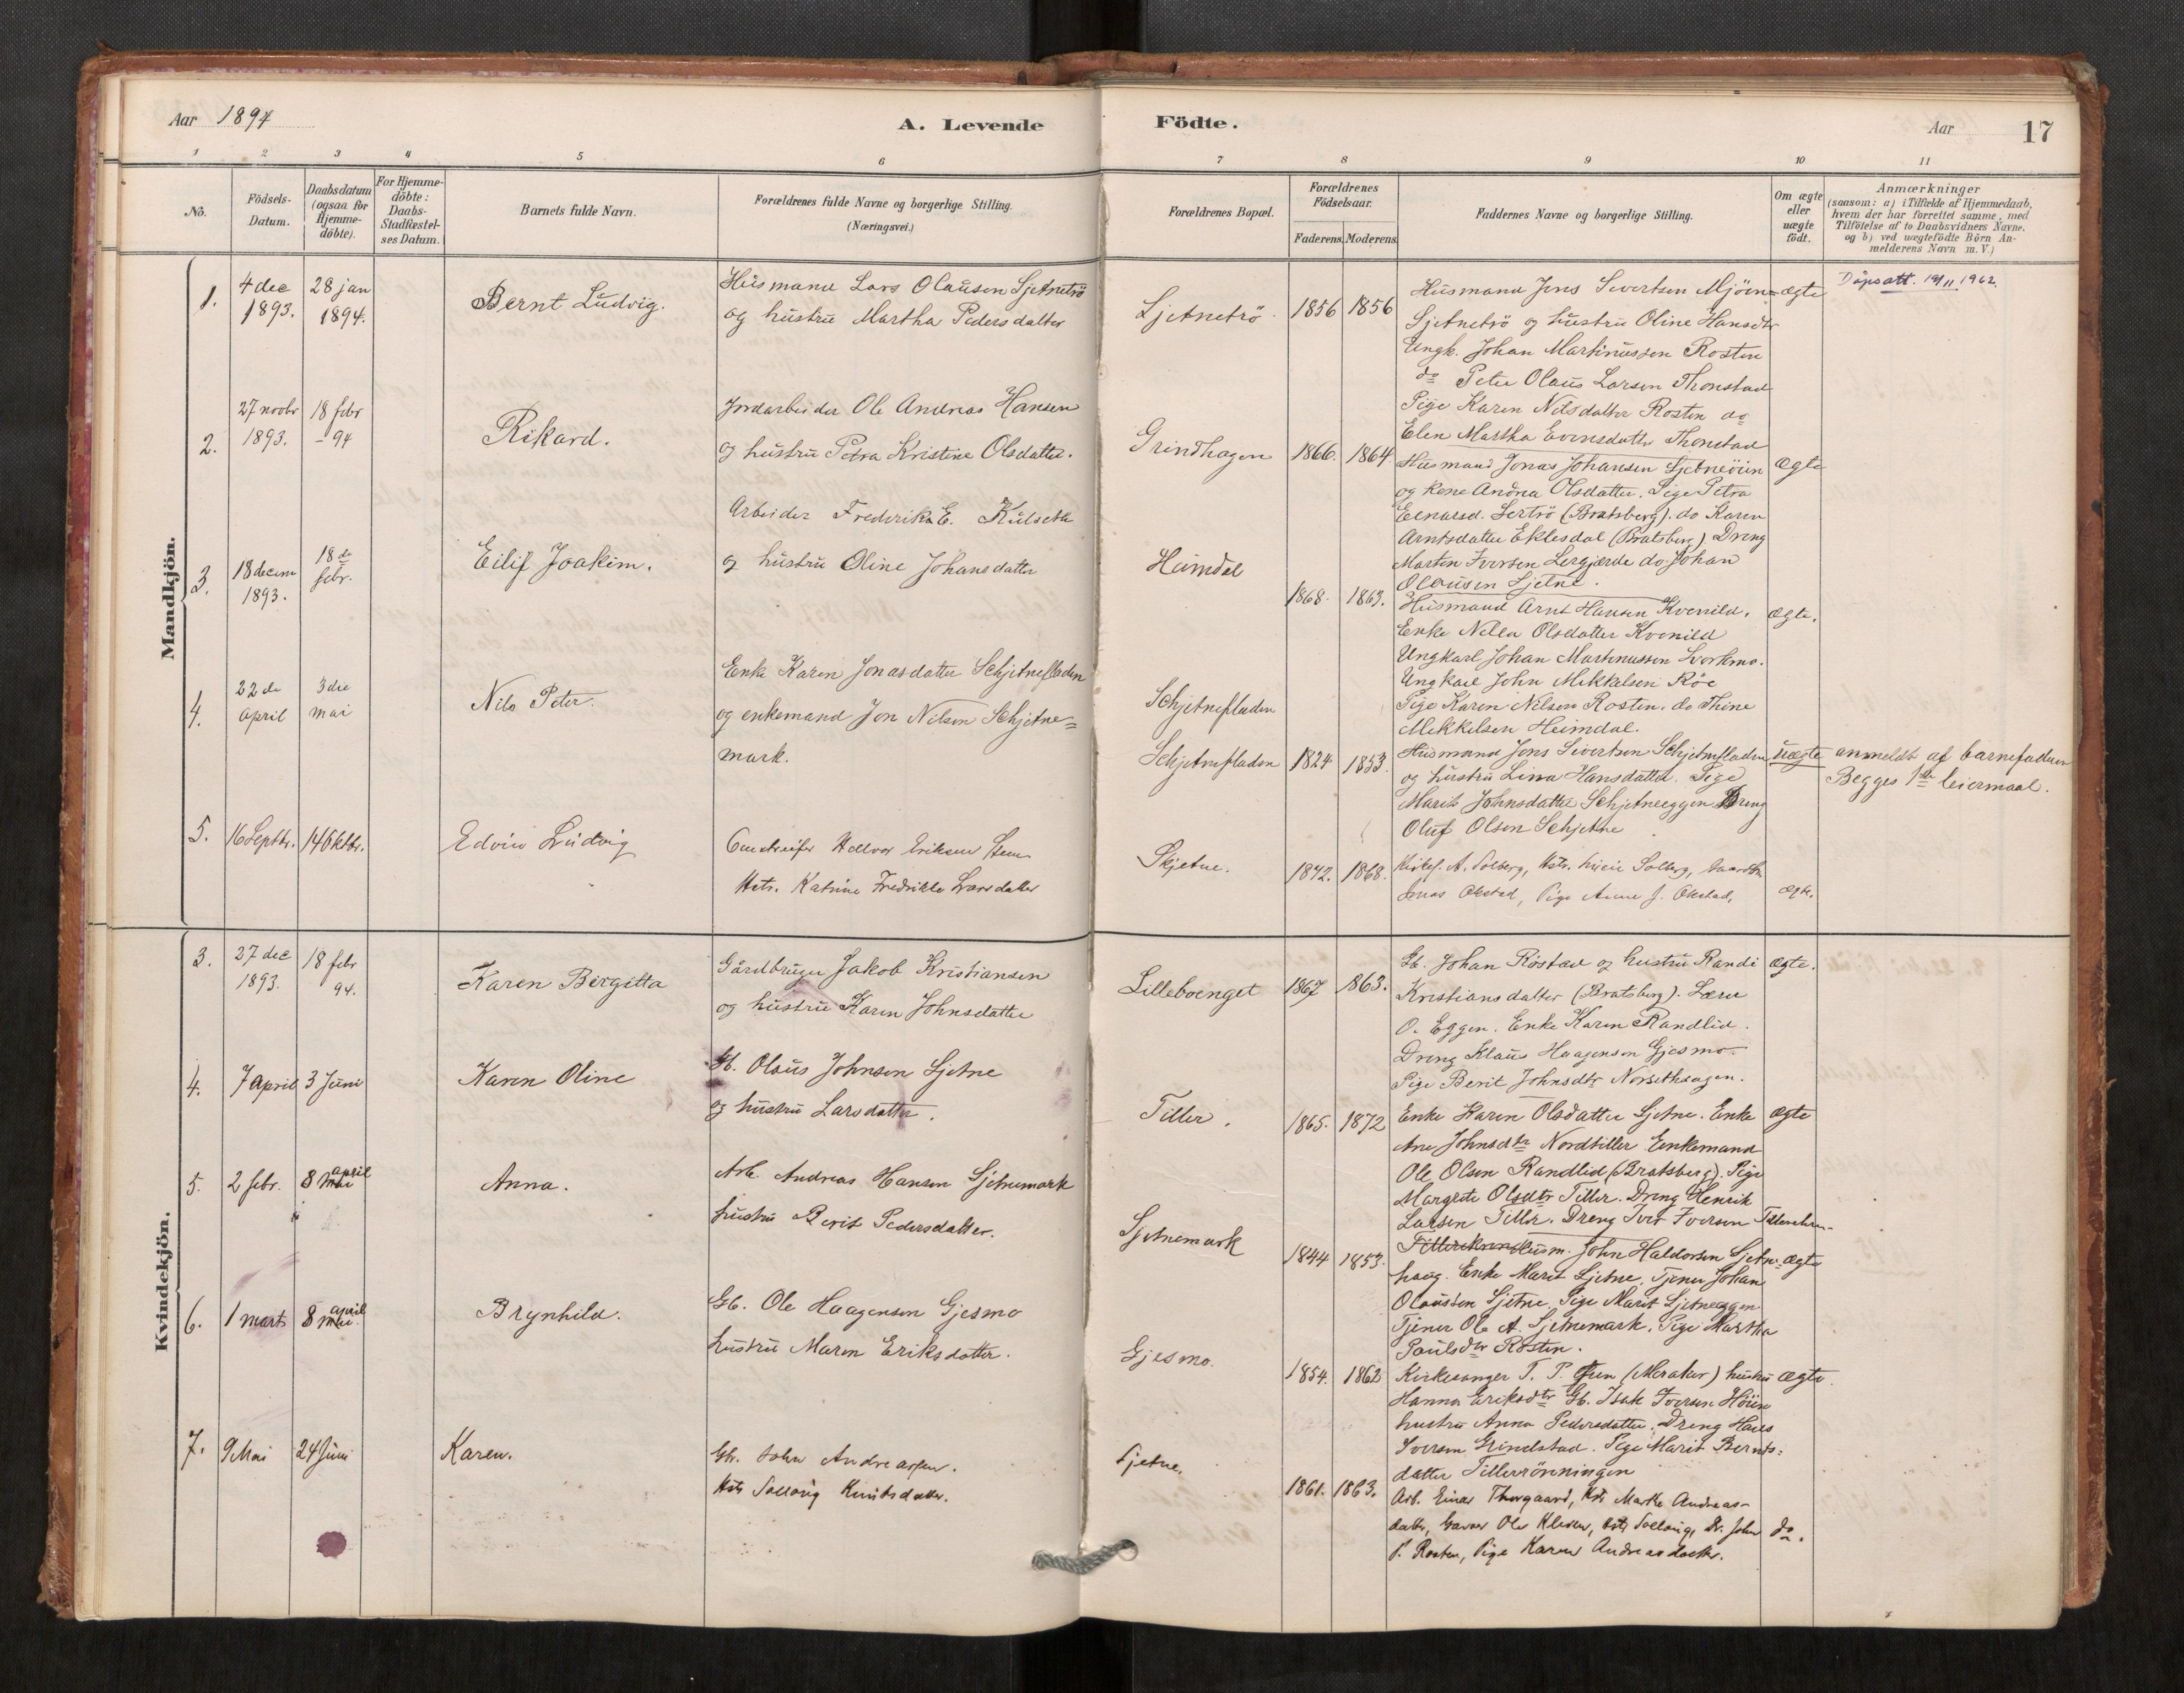 Aar 1894
A. Levende
Födte.
Aar
17
1 2 3 4 5 6 7 8 9 10 11
No.
Födsels-Datum.
Daabsdatum (ogsaa for Hjemme-döbte).
For Hjemme-döbte: Daabs-Stadfæstel-ses Datum.
Barnets fulde Navn.
Forældrenes fulde Navne og borgerlige Stilling.
(Næringsvei.)
Forældrenes Bopæl.
Forældrenes Födselsaar.
Faderens. Moderens.
Faddernes Navne og borgerlige Stilling.
Om ægte eller uægte födt.
Anmærkninger
(saasom: a) i Tilfælde af Hjemmedaab,
hvem der har forrettet samme, med
Tilföielse af to Daabsvidners Navne,
og b) ved uægtefödte Börn An-
melderens Navn m. V.)
Mandkjön.
1.
4 dec
1893.
28 jan
1894.
Bernt Ludvig.
Husmand Lars Olausen Sjetnetrö
og hustru Martha Pedersdatter
Sjetnetrö
1856
1856
Husmand Jens Sivertsen Mjöen=
Sjetnetrö og hustru Oline Hansdtr
Ungk. Johan Martinussen Rosten
do Peter Olaus Larsen Thonstad
Pige Karen Nilsdatter Rosten do
Elen Martha Evensdatter Thonstad
ægte
Dåpsatt. 1962.
2.
27 novbr
1893.
18 febr
- 94
Rikard.
Jordarbeider Ole Andreas Hansen
og hustru Petra Kristine Olsdatter.
Grindhagen
1866.
1864
Husmand Jonas Johansen Sjetneöien
og kone Andrea Olsdatter. Pige Petra
Einarsd. Lertrö (Bratsberg). do Karen
Arntsdatter Eklesdal (Bratsberg). Dreng
Morten Iversen Lergjærde do Johan
Olausen Sjetne.
ægte
3.
18 decem
1893.
18 de
febr.
Eilif Joakim.
Arbeider Frederik E. Kulseth
og hustru Oline Johansdatter
Heimdal
1868.
1863.
Husmand Arnt Hansen Kvenild.
Enke Nella Olsdatter Kvenild
Ungkarl Johan Martinussen Svorkmo.
Ungkarl John Mikkelsen Röe
Pige Karen Nilsen Rosten. do Thine
Mekkelsen Heimdal.
ægte.
4.
22 de
april
3 die
mai
Nils Peter.
Enke Karen Jonasdatter Schjetnefladen
og enkemand Jon Nilsen Schjetne=
mark.
Schjetnefladen
Schjetnefladen
1824
1853.
Husmand Jens Sivertsen Schjetnefladen
og hustru Lina Hansdatter. Pige
Marit Johnsdatter Schjetneeggen Dreng
Oluf Olsen Schjetne
uægte
anmeldt af barnefaderen
Begges 1ste leiermaal.
5.
16 Septbr.
14 Oktbr.
Edvin Ludvig
Omstreifer Halvor Eriksen
Hstr. Katrine Fredrikke Larsdatter
Skjetne.
1872.
1868.
Kirkes. A. Solberg, Hstr. Solberg,
Jonas Okstad, Pige Anne J. Okstad,
ægte.
Kvindekjön.
3.
27 dec
1893.
18 febr
94.
Karen Birgitta
Gårdbruger Jakob Kristiansen
og hustru Karen Johnsdatter
Lilleboenget
1867
1863.
Gb. Johan Röstad og hustru Randi
Kristiansdatter (Bratsberg). Lærer
O. Eggen. Enke Karen Randlid.
Dreng Klaus Haagensen Gjesmo.
Pige Berit Johnsdtr Norsethaagen.
ægte.
4.
7 april
3 Juni
Karen Oline
Gb. Olaus Johnsen Sjetne
og hustru Larsdatter.
Tiller.
1865.
1872
Enke Karen Olsdatter Sjetne. Enke
Ane Johnsdtr Nordtiller Enkemand
Ole Olsen Randlid (Bratsberg). Pige
Margrete Olsdtr Tiller. Dreng Henrik
Larsen Tiller. Dreng Iver Iversen
ægte
5.
2 febr.
8 mai april
Anna.
Arb. Andreas Hansen Sjetnemark
hustru Berit Pedersdatter.
Sjetnemark
1844
1853.
Husm. John Haldorsen Sjetne-
haug. Enke Marit Sjetne. Tjener Johan
Olaussen Sjetne. Pige Marit Sjetneeggen
Tjener Ole A. Sjetnemark. Pige Martha
Paulsdtr Rosten.
ægte
6.
1 marts
8 mai april
Brynhild.
Gb. Ole Haagensen Gjesmo
hustru Maren Eriksdatter.
Gjesmo.
1854.
1862
Kirkesanger T. P. (Meraker) hustru
Hanna Eriksdtr Gb. Isak Iversen Höiem
hustru Anna Pedersdatter. Dreng Hans
Iversen Grindstad. Pige Marit Bernts=
datter Tillerrönningen
ægte.
7.
9 Mai
24 Juni
Karen.
Gb. John Andreassen.
Hstr Solloug Knutsdatter.
Sjetne.
1861.
1863.
Arb. Einar Thorgaard, Hstr Marthe Andreas-
datter, Garver Ole Kleven, Hstr Solloug, Dr. John
P. Rosten, Pige Karen Andreasdatter.
do.